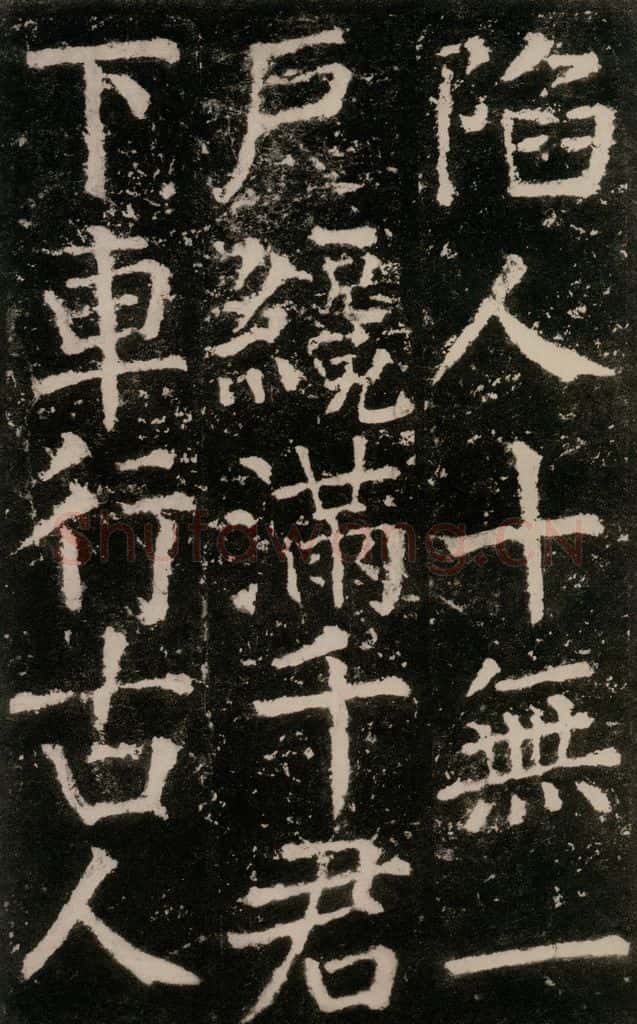 陷人十無一
戶纔滿千君
下車行古人
Shufawang.CN